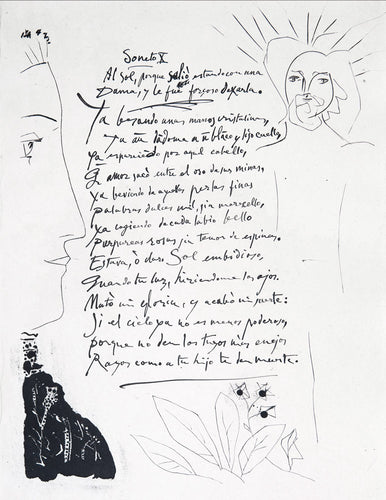 Soneto X
Al Sol, porque salió estando con una
Dama, y le fue forzoso dexarla.
Ya besando unas manos cristalinas,
Ya blãco y liso cuello,
ya esparciendo por aquel cabello,
Q amor sacó entre el oro de sus minas,
ya beviendo de aquellas perlas finas
palabras dulces mil, sin merecello,
ya cogiendo de cada labio bello
purpureas rosas, sin temor de espinas.
Estava, ò claro Sol embidioso,
Quando tu luz, hiriendome los ojos,
Matò mi gloria, y acabò mi suerte:
Si el cielo ya no es menos poderoso,
porque no den los tuyos mas enojos
Rayos como a tu hijo te den muerte.